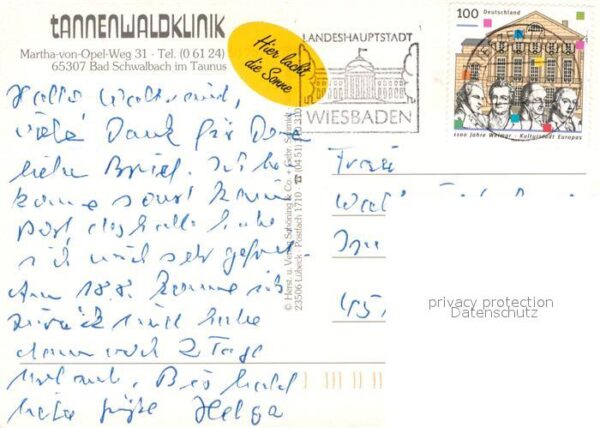 tANNENWALDKLINIK
Martha-von-Opel-Weg 31 · Tel. (0 61 24)
65307 Bad Schwalbach im Taunus
Hier lacht
die Sonne
LANDESHAUPTSTADT
WIESBADEN
100 Deutschland
1100 Jahre Weimar - Kulturstadt Europas
Hallo
viele Dank für
liebe Brief. Ich be-
komme sonst kaum
Post deshalb habe
ich mich sehr gefreut.
Am 18.8. komme ich
zurück und habe
dann noch 2 Tage
Urlaub. Bis bald
liebe Grüße Helga
© Herst. u. Verlag Schöning & Co. + Gebr. Schmidt
23506 Lübeck · Postfach 1710 · ☎ (04 51)
Frau
45
privacy protection
Datenschutz